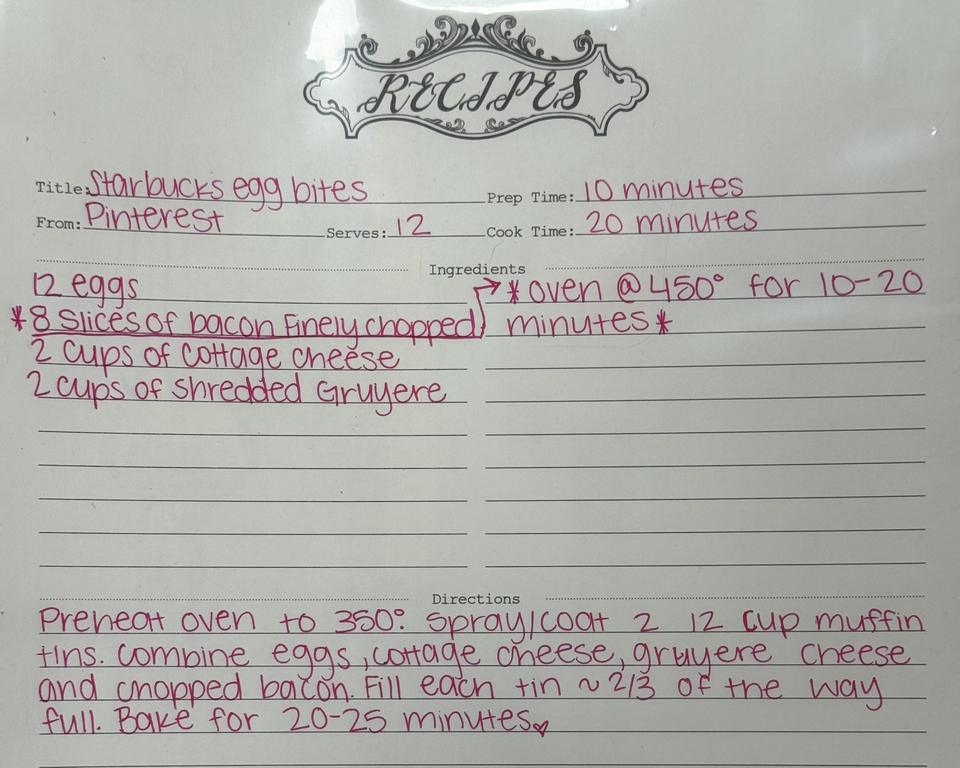 RECIPES
Title: Starbucks egg bites Prep Time: 10 minutes
From: Pinterest Serves: 12 Cook Time: 20 minutes
Ingredients
12 eggs
*8 slices of bacon finely chopped
2 cups of cottage cheese
2 cups of shredded Gruyere
* oven @ 450° for 10-20
minutes *
Directions
Preheat oven to 350° spray/coat 2 12 cup muffin
tins. Combine eggs, cottage cheese, gruyere cheese
and chopped bacon. Fill each tin ~ 2/3 of the way
full. Bake for 20-25 minutes ♡